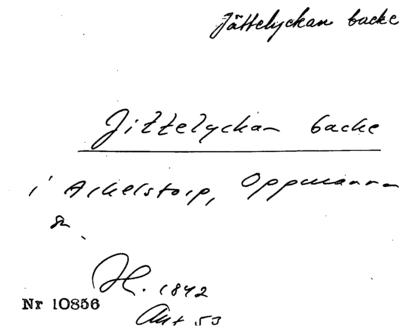 Jättelyckan backe
Jittelyckan backe
i Arkelstorp, Oppmanna
sn.
H. 1842
Akt 53
Nr 10856